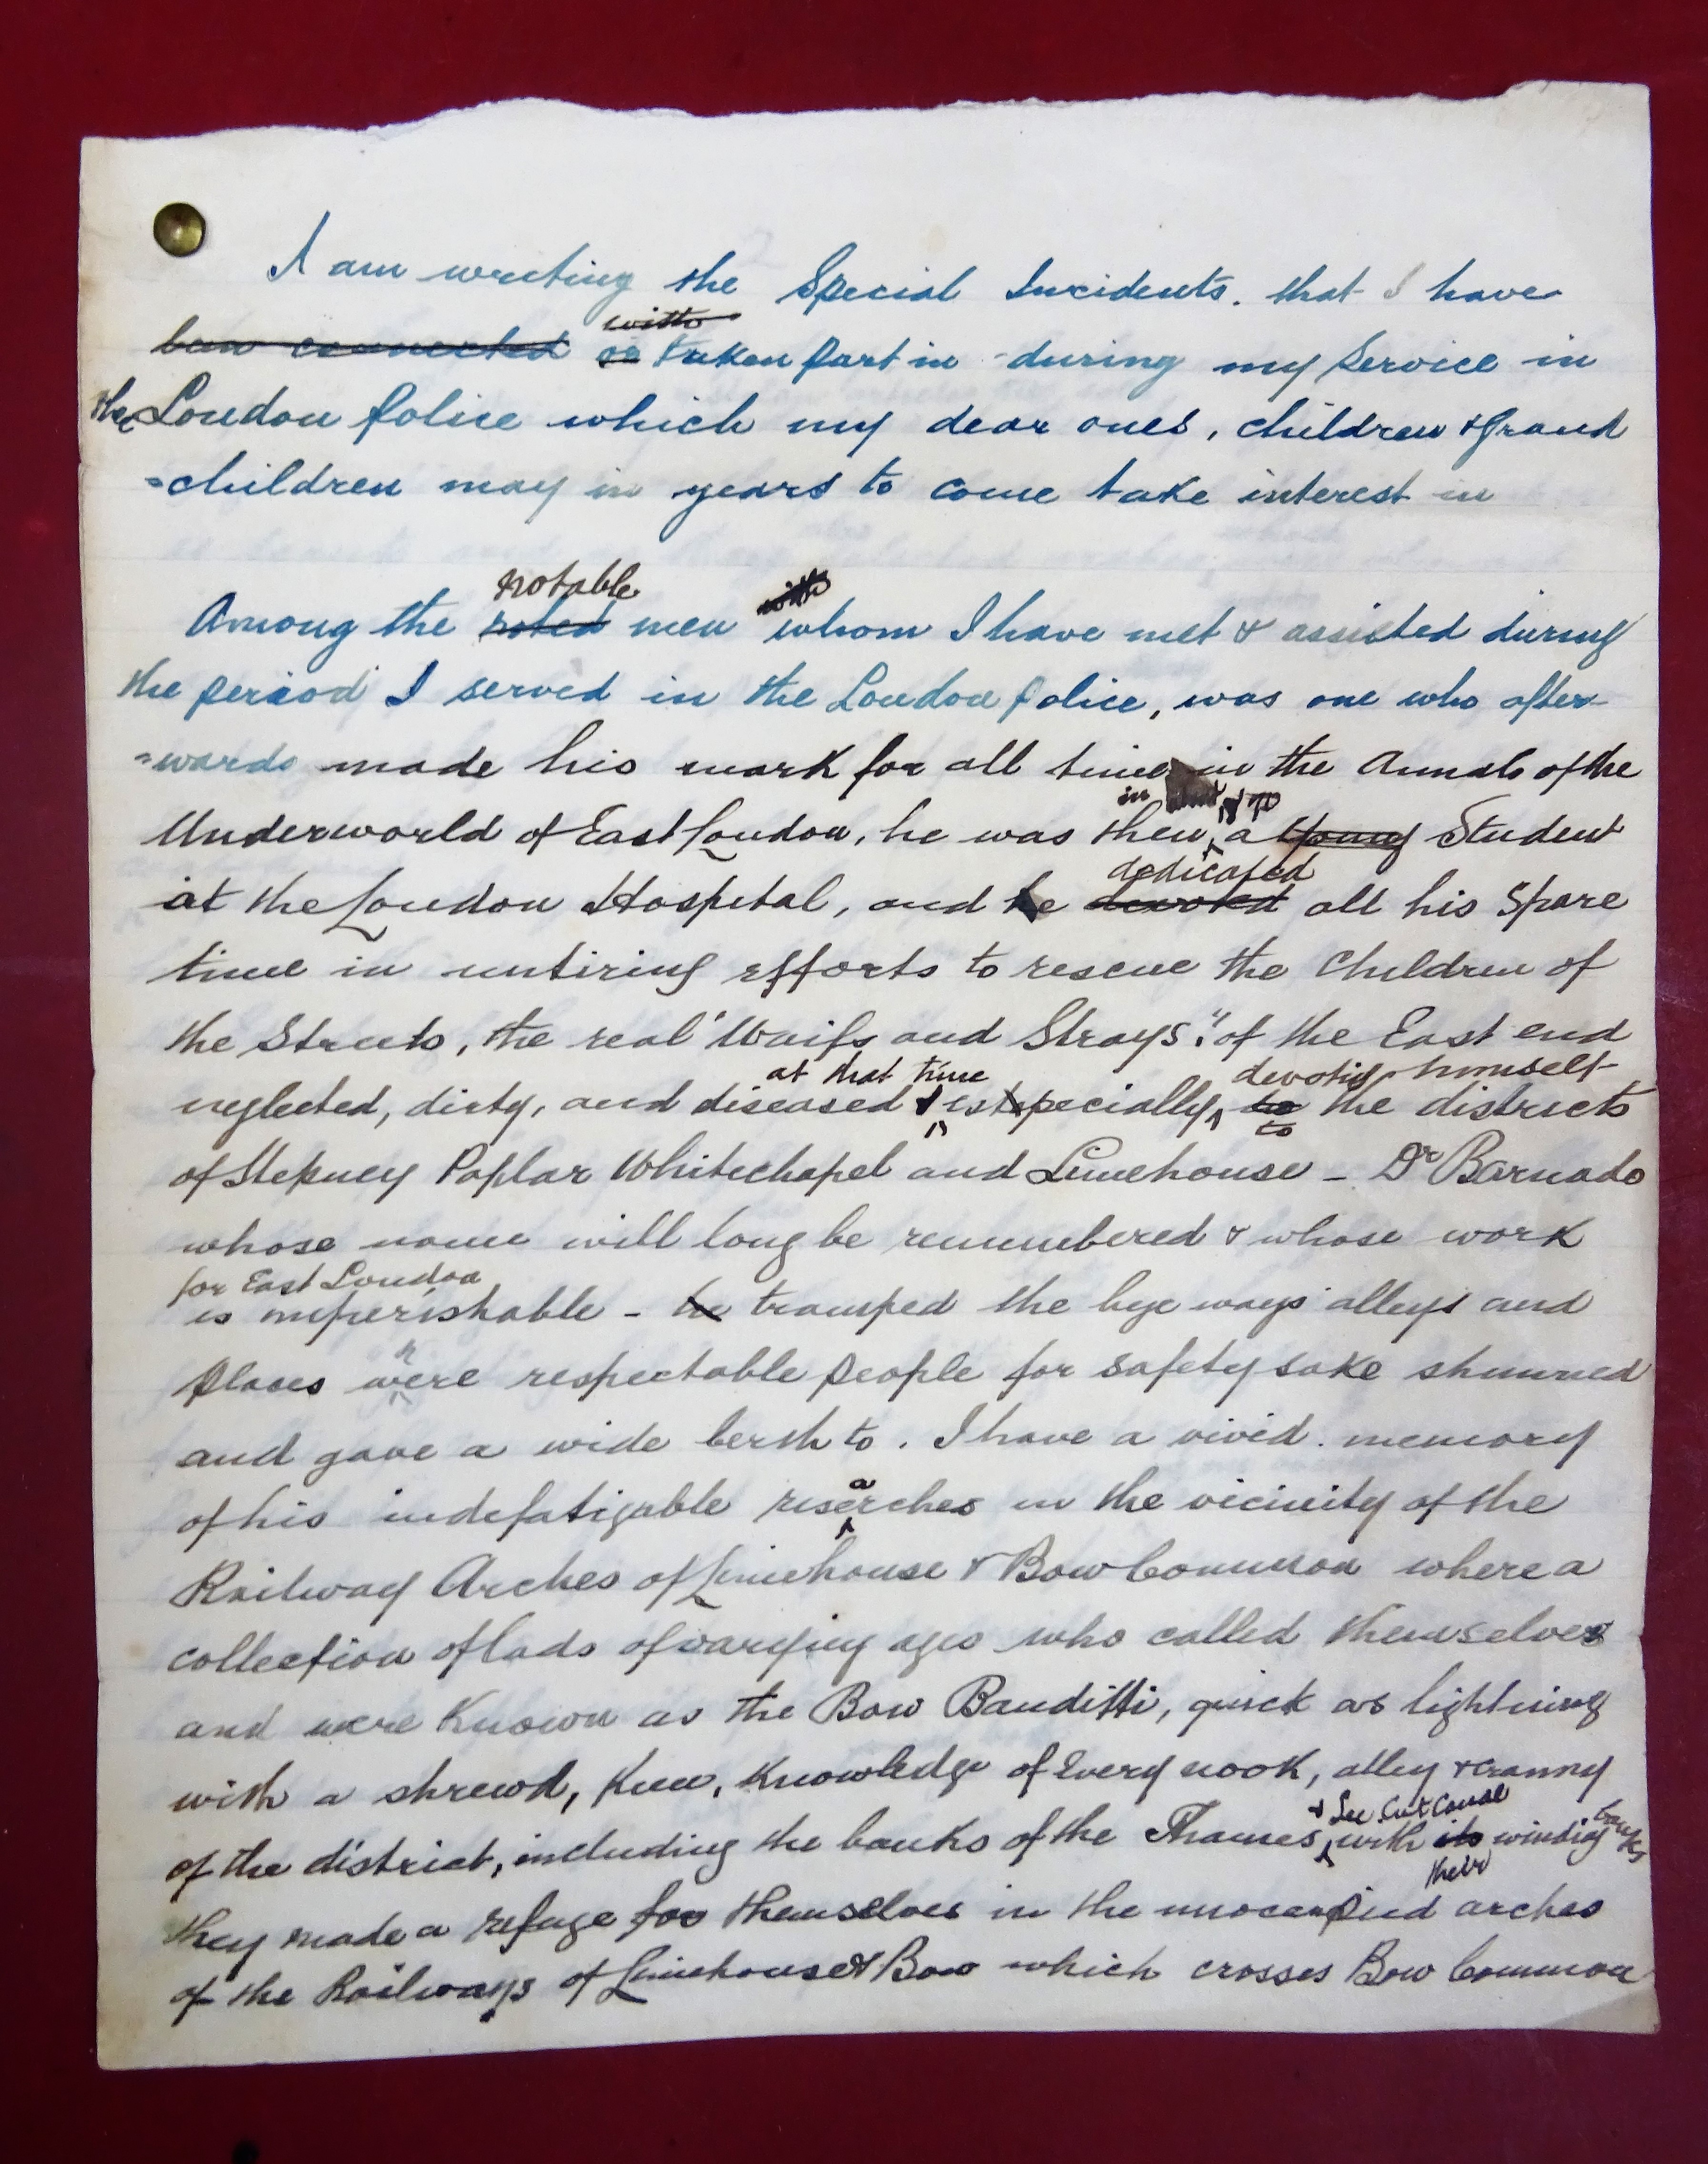 I am writing the Special Incidents. that I have
with
been connected or taken part in during my Service in
the London Police which my dear ones, children & Grand
=children may in years to come take interest in
notable with
Among the noted men whom I have met & assisted during
the period I served in the London police, was one who after-
=wards made his mark for all time in the Annals of the
in
Underworld of East London, he was then, a young Student
dedicated
at the London Hospital, and he devoted all his Spare
time in untiring efforts to rescue the Children of
the Streets, the real "Waifs and Strays", of the East end
at that time devoting himself
neglected, dirty, and diseased & especially, to the districts
to
of Stepney Poplar Whitechapel and Limehouse - Dr Barnado
whose name will long be remembered & whose work
for East London
is imperishable - he tramped the bye ways alleys and
h
places were respectable people for safety sake shunned
and gave a wide berth to. I have a vivid. memory
a
of his indefatigable reserches in the vicinity of the
Railway Arches of Limehouse & Bow Common where a
collection of lads of varying ages who called themselves
and were Known as the Bow Banditti, quick as lightning
with a shrewd, Keen, Knowledge of Every nook, alley & cranny
& Lee Cut Canal
of the district, including the banks of the Thames, with its winding banks
their
they made a refuge for themselves in the unoccupied arches
of the Railways of Limehouse & Bow which crosses Bow Common